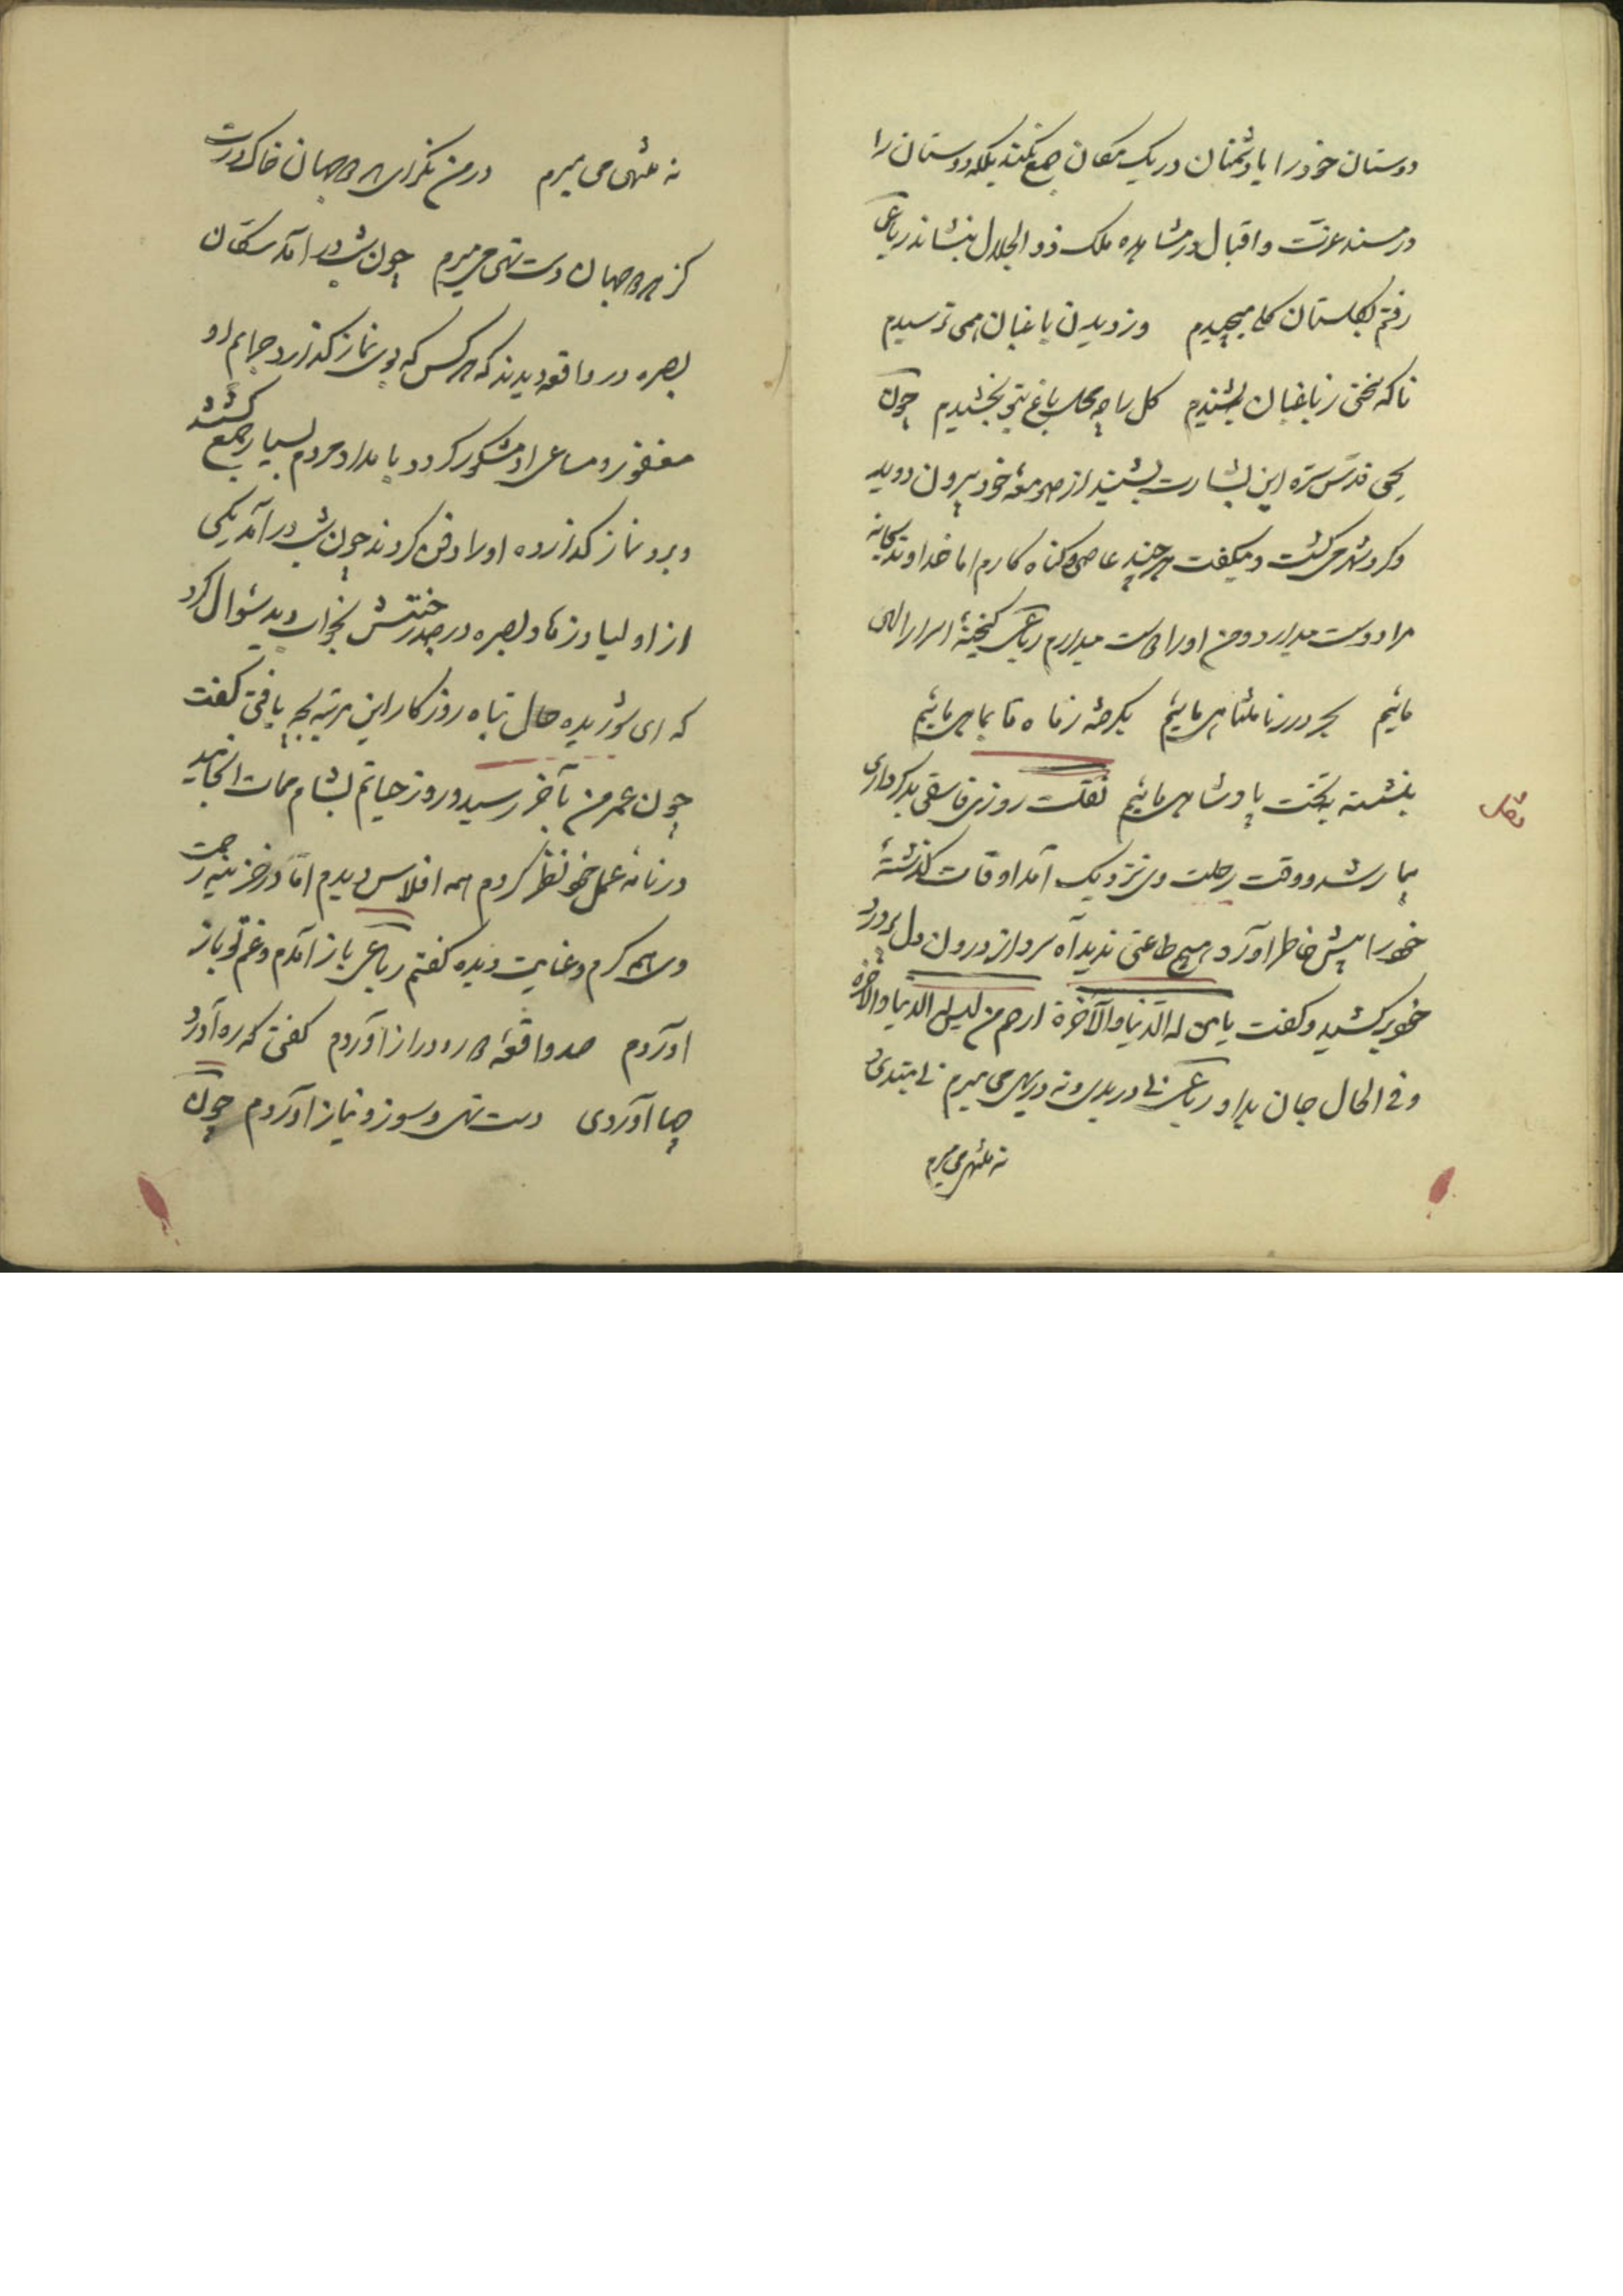 دوستان خود را با دشمنان در یک مکان جمع نکند بلکه دوستان را
در مسند عزت و اقبال در مشاهده ملک ذو الجلال بنشاند رباعی
رفتم بگلستان گلی میچیدم وز دیدن باغبان همی ترسیدم
ناگه سخنی ز باغبان بشنیدم گل را چه محل باغ بتو بخشیدم چون
یحیی قدس سره این بشارت بشنید از صومعه خود بیرون دوید
و کرد شهر می گشت و میگفت هر چند عاصی و گناه کارم اما خداوند یگانه
مرا دوست میدارد و من او را دوست میدارم رباعی گنجینهٔ اسرار الهی
مائیم بحر درر نامتناهی مائیم بگرفته ز ماه تا بماهی مائیم
بنشسته بتخت پادشاهی مائیم نقلست روزی فاسقی بدکرداری
نقل
بیمار شد و وقت رحلت وی نزدیک آمد اوقات گذشتهٔ
خود را پیش خاطر آورد هیچ طاعتی ندید آه سرد از درون دل پر درد
خود برکشید و گفت یا من له الدنیا والآخرة ارحم من لیس له الدنیا والآخرة
و فی الحال جان بداد رباعی نی در بدی و نه در بهی می میرم نی مبتدی و
نه منتهی میمیرم
نه منتهی می میرم در من نگر ای هر دو جهان خاک درت
کز هر دو جهان دست تهی می میرم چون شب در آمد سکان
بصره در واقعه دیدند که هر کس که بر وی نماز گذارد جرایم او
مغفور و مساعی او مشکور گردد بامداد مردم بسیار جمع گشتند
و برو نماز گذارده او را دفن کردند چون شب در آمد یکی
از اولیا و زهاد بصره در صدر جنتش بخواب دید سئوال کرد
که ای شوریده حال تباه روزگار این مرتبه بچه یافتی گفت
چون عمر من بآخر رسید و روز حیاتم بشام ممات انجامید
در نامه عمل خود نظر کردم همه افلاس دیدم اما در خزینه رحمت
وی همه کرم و عنایت دیده گفتم رباعی باز آمدم و غم تو باز
آوردم صد واقعهٔ دور دراز آوردم گفتی که ره آورد
چها آوردی دست تهی و سوز و نیاز آوردم چون